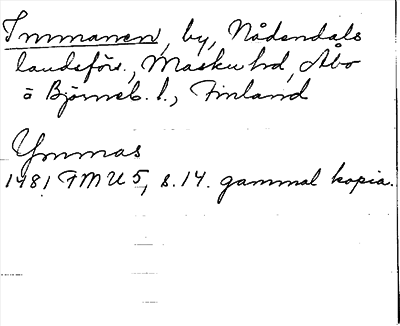 Immanen, by, Nådendals
landsförs., Masku hd, Åbo
o Björneb. l., Finland
Ynmas
1481 FMU 5, s. 14. gammal kopia.